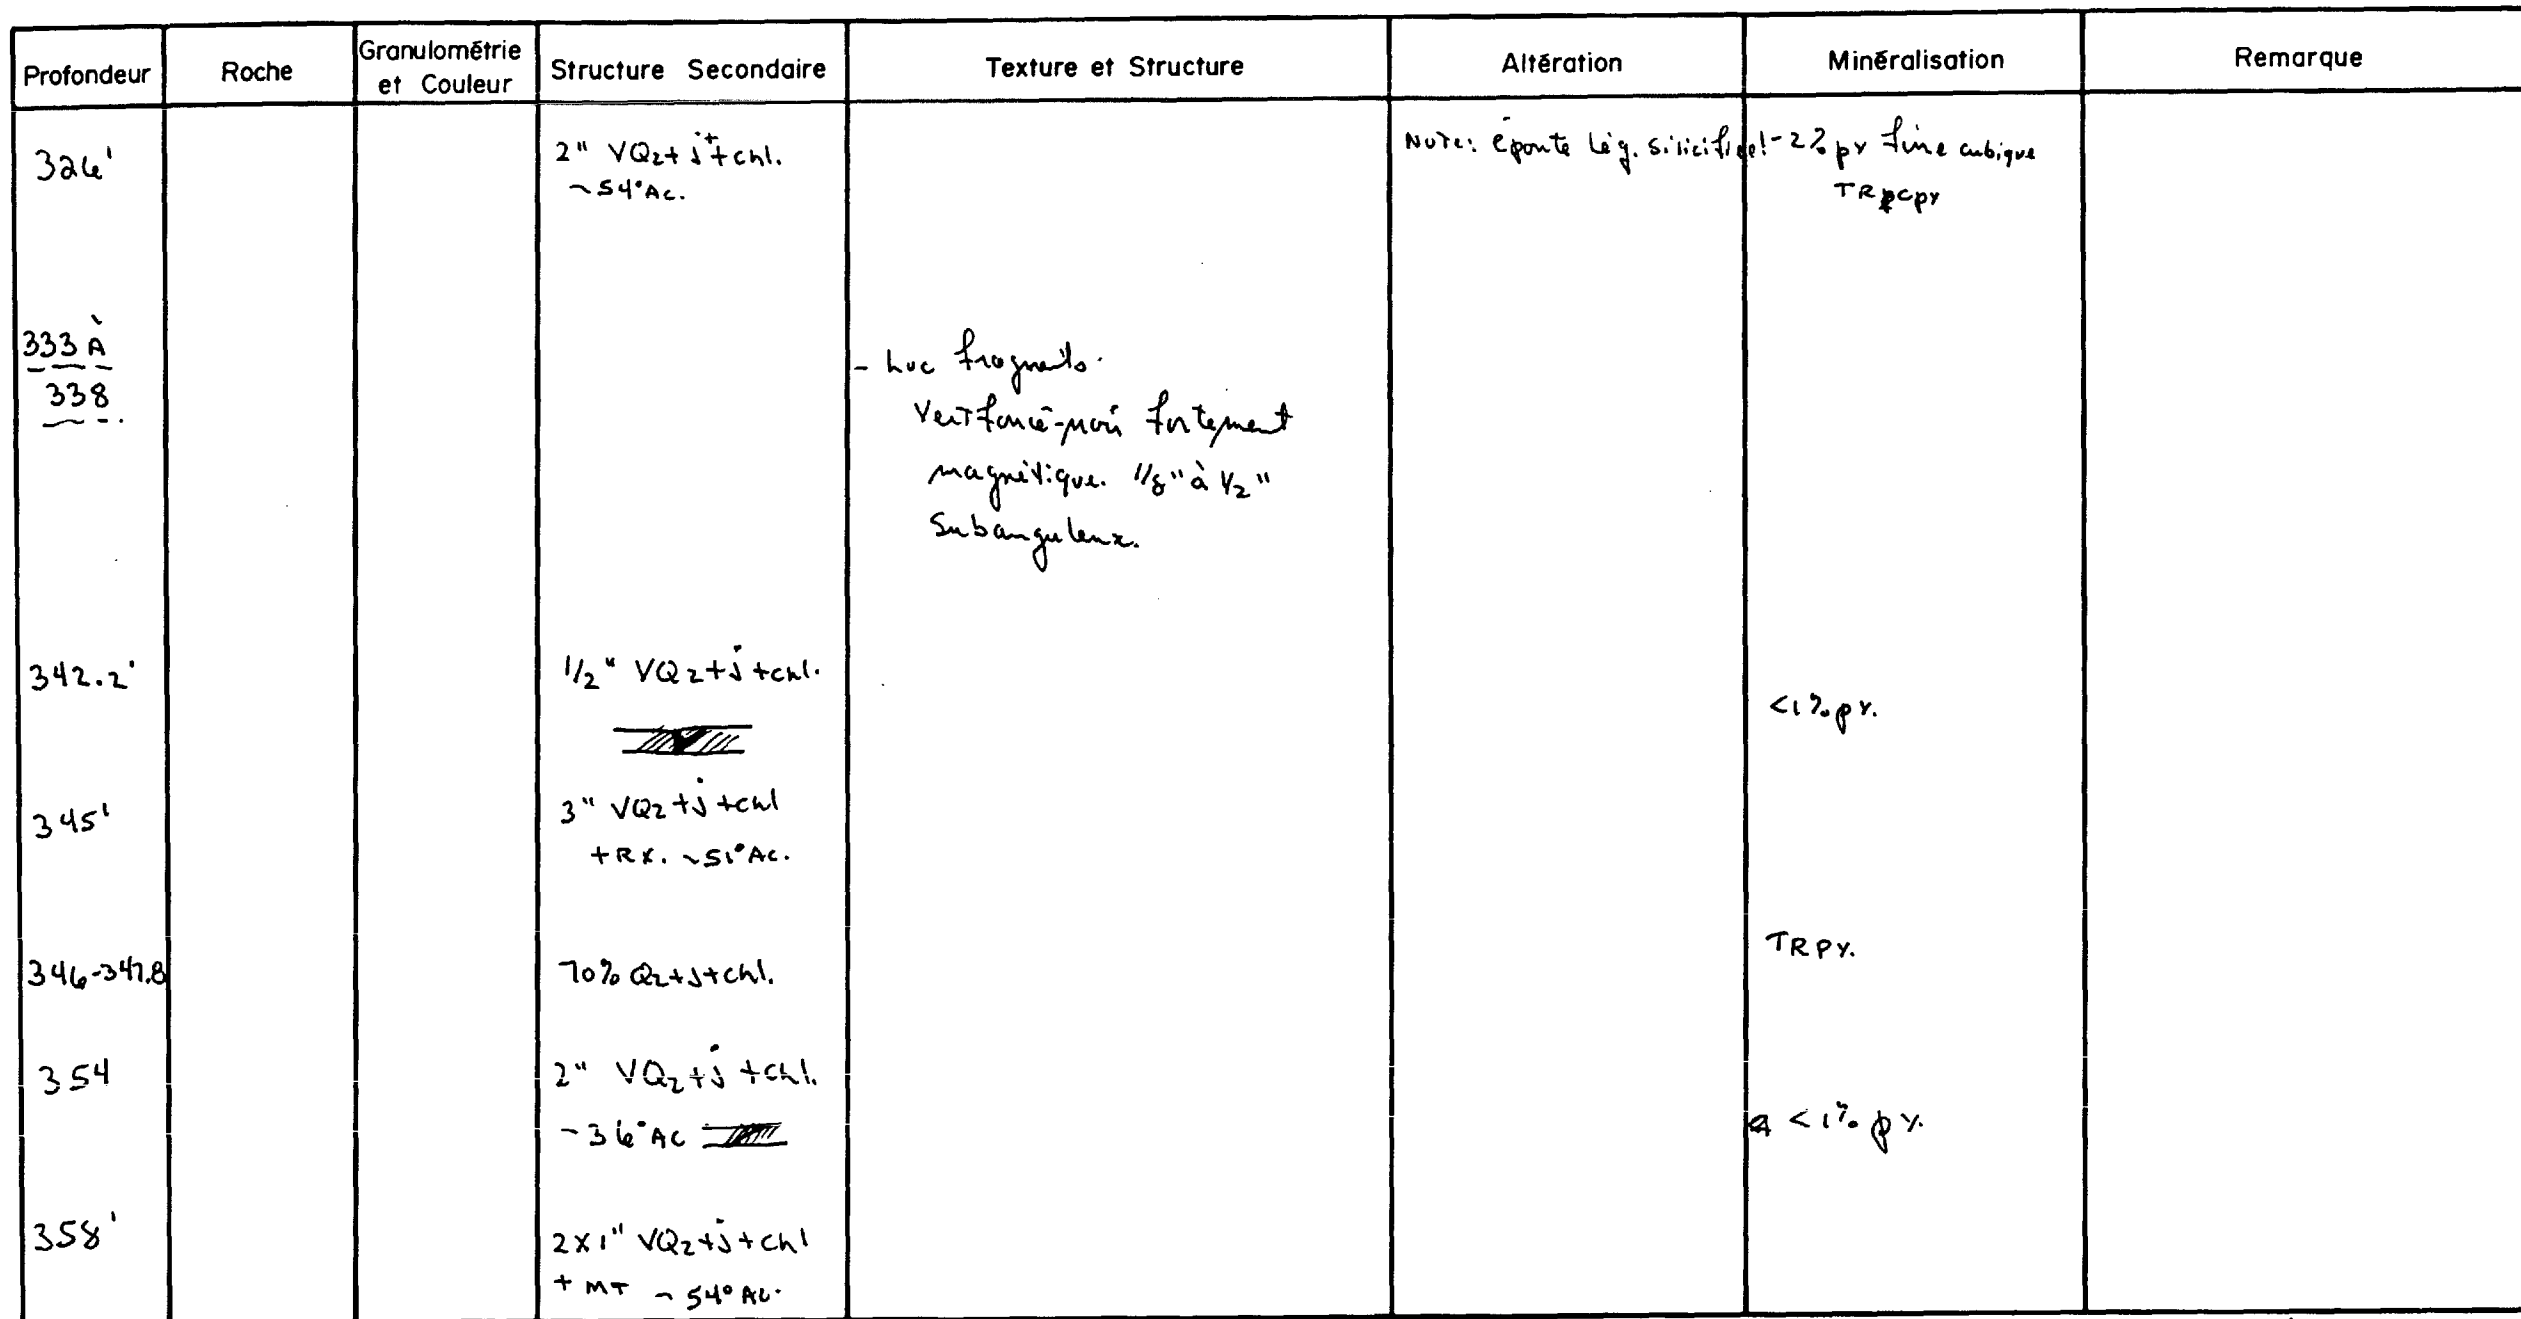 Profondeur Roche Granulométrie et Couleur Structure Secondaire Texture et Structure Altération Minéralisation Remarque
326' 2" VQz+j+chl. Note: éponte lég. silicifiée 1-2% py fine cubique
~54°Ac. TR cpy
333 À
338
fragments.
Vert foncé-noir fortement
magnétique. 1/8" à 1/2"
Subanguleux.
342.2' 1/2" VQz+j+chl.
<1% py.
345' 3" VQz+j+chl
+Rx. ~51°Ac.
TRPY.
346-347.8 70% Qz+j+chl.
354 2" VQz+j+chl.
~36°Ac <1% py.
358' 2x1" VQz+j+chl
+ MT ~54°Ac.